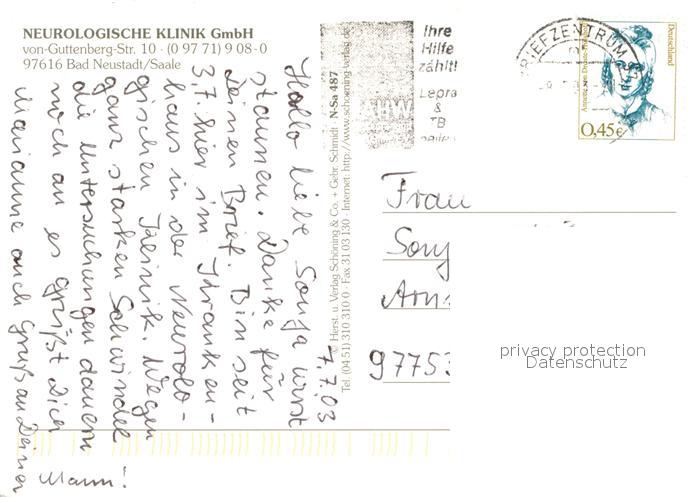 NEUROLOGISCHE KLINIK GmbH
von-Guttenberg-Str. 10 · (0 97 71) 9 08-0
97616 Bad Neustadt/Saale
7.7.03
Hallo liebe Sonja wirst
staunen. Danke für
Deinen Brief. Bin seit
3.7. hier im Kranken-
haus in der Neurolo-
gischen Kleinik. Wegen
ganz starken Schwindel
die Untersuchungen dauern
noch an es grüßt Dich
Marianne auch Gruß an Deinen
Mann!
Herst. u. Verlag Schöning & Co. + Gebr. Schmidt · N-Sa 487
Tel. (04 51) 310 310 0 · Fax 31 03 130 · Internet: http://www.schoening-verlag.de
Ihre
Hilfe
zählt!
Lepra
&
TB
BRIEFZENTRUM
Deutschland
Annette von Droste-Hülshoff
0,45€
Frau
Sony
Arn
9775
privacy protection
Datenschutz